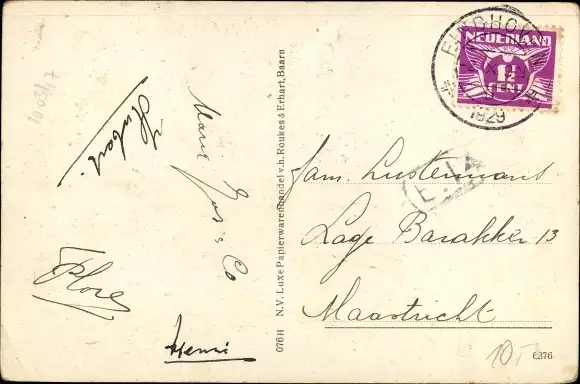 Hubert
Marie
Jos & Co
Flore
Henri
076H N.V. LuXe Papierwarenhandel v.h. Roukes & Erhart, Baarn
EINDHOVEN
1929
NEDERLAND
1½
CENT
Fam. Lustermans
Lage Barakken 13
Maastricht
10
6876